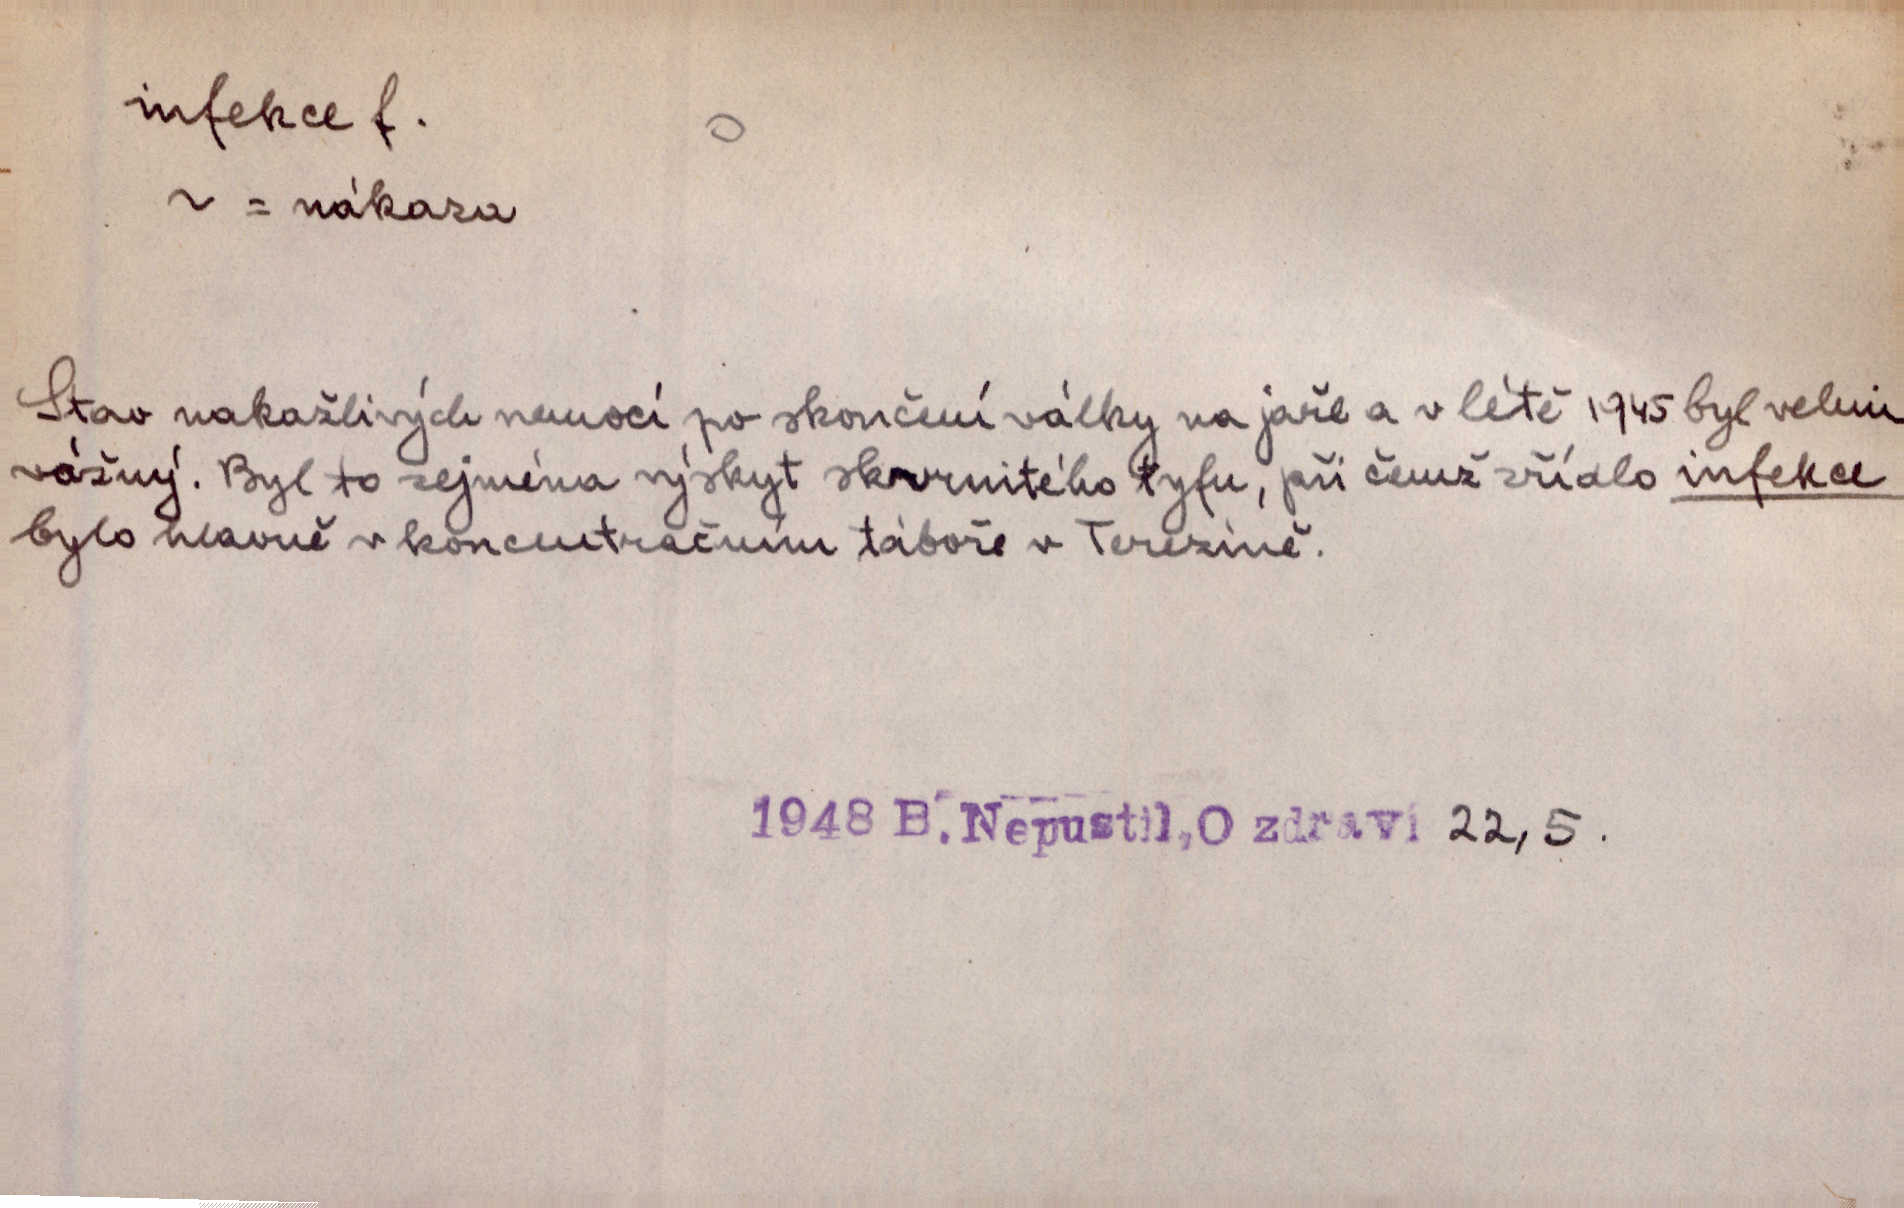 infekce f.
~ = nákaza
Stav nakažlivých nemocí po skončení války na jaře a v létě 1945 byl velmi
vážný. Byl to zejména výskyt skvrnitého tyfu, při čemž zřídlo infekce
bylo hlavně v koncentračním táboře v Terezíně.
1948 B. Nepustil, O zdraví 22, 5.